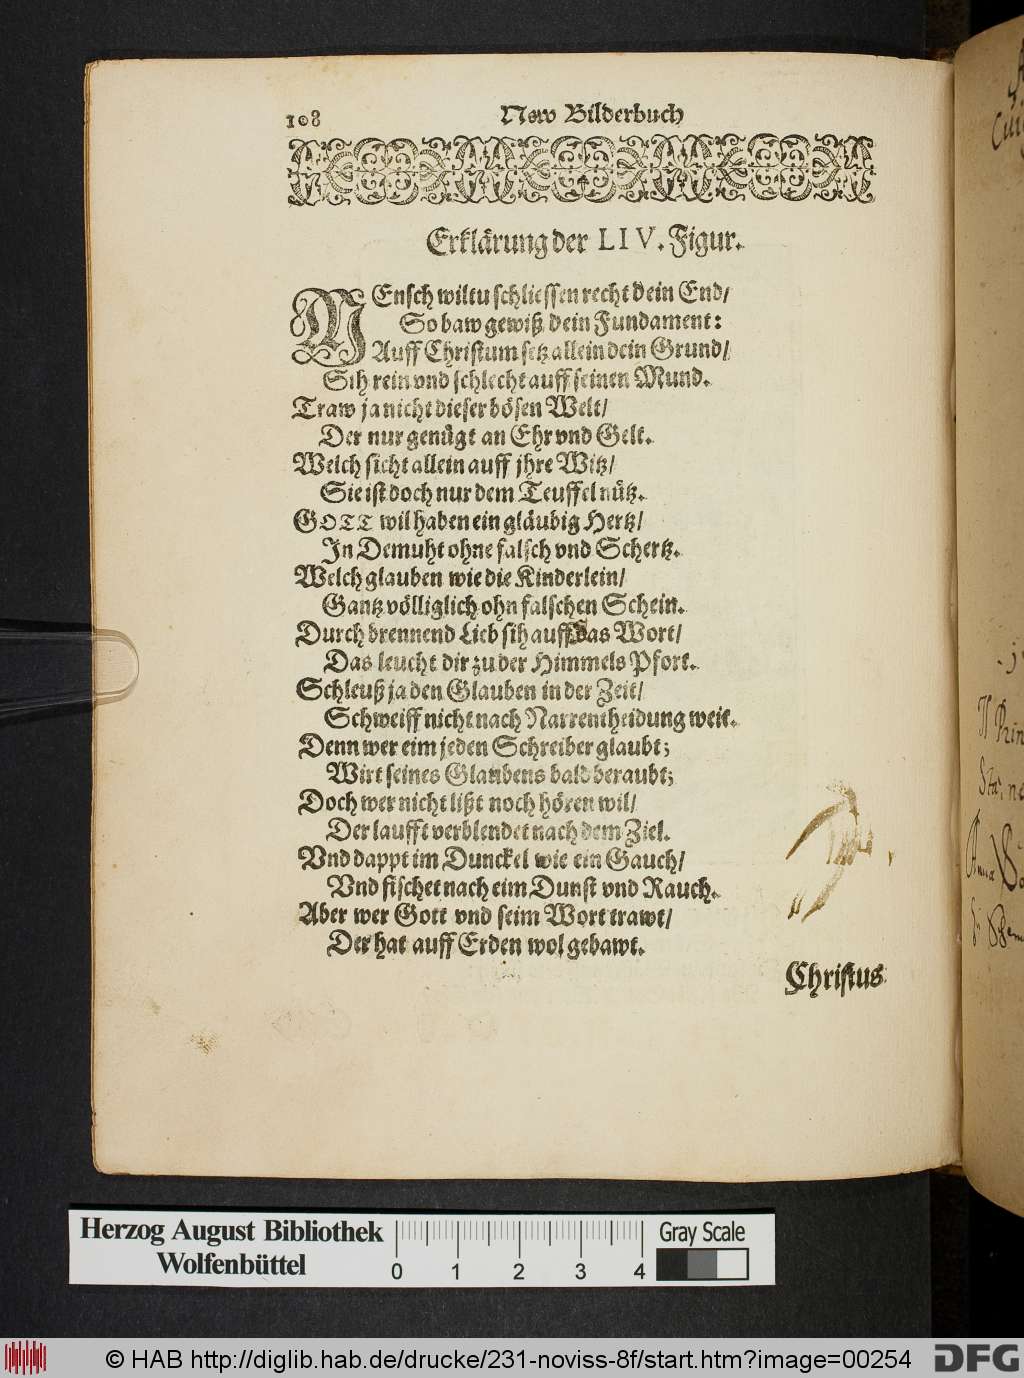 108
New Bilderbuch
Erklärung der LIV. Figur.
MEnsch wiltu schliessen recht dein End/
So baw gewiß dein Fundament:
Auff Christum setz allein dein Grund/
Sih rein vnd schlecht auff seinen Mund.
Traw ja nicht dieser bösen Welt/
Der nur genügt an Ehr vnd Gelt.
Welch sicht allein auff jhre Witz/
Sie ist doch nur dem Teuffel nütz.
GOTT wil haben ein gläubig Hertz/
In Demuht ohne falsch vnd Schertz.
Welch glauben wie die Kinderlein/
Gantz völliglich ohn falschen Schein.
Durch brennend Lieb sih auff das Wort/
Das leucht dir zu der Himmels Pfort.
Schleuß ja den Glauben in der Zeit/
Schweiff nicht nach Narrentheidung weit.
Denn wer eim jeden Schreiber glaubt;
Wirt seines Glaubens bald beraubt;
Doch wer nicht lißt noch hören wil/
Der laufft verblendet nach dem Ziel.
Vnd dappt im Dunckel wie ein Gauch/
Vnd fischet nach eim Dunst vnd Rauch.
Aber wer Gott vnd seim Wort trawt/
Der hat auff Erden wol gebawt.
Christus
Herzog August Bibliothek
Wolfenbüttel
0 1 2 3 4
Gray Scale
© HAB http://diglib.hab.de/drucke/231-noviss-8f/start.htm?image=00254
DFG